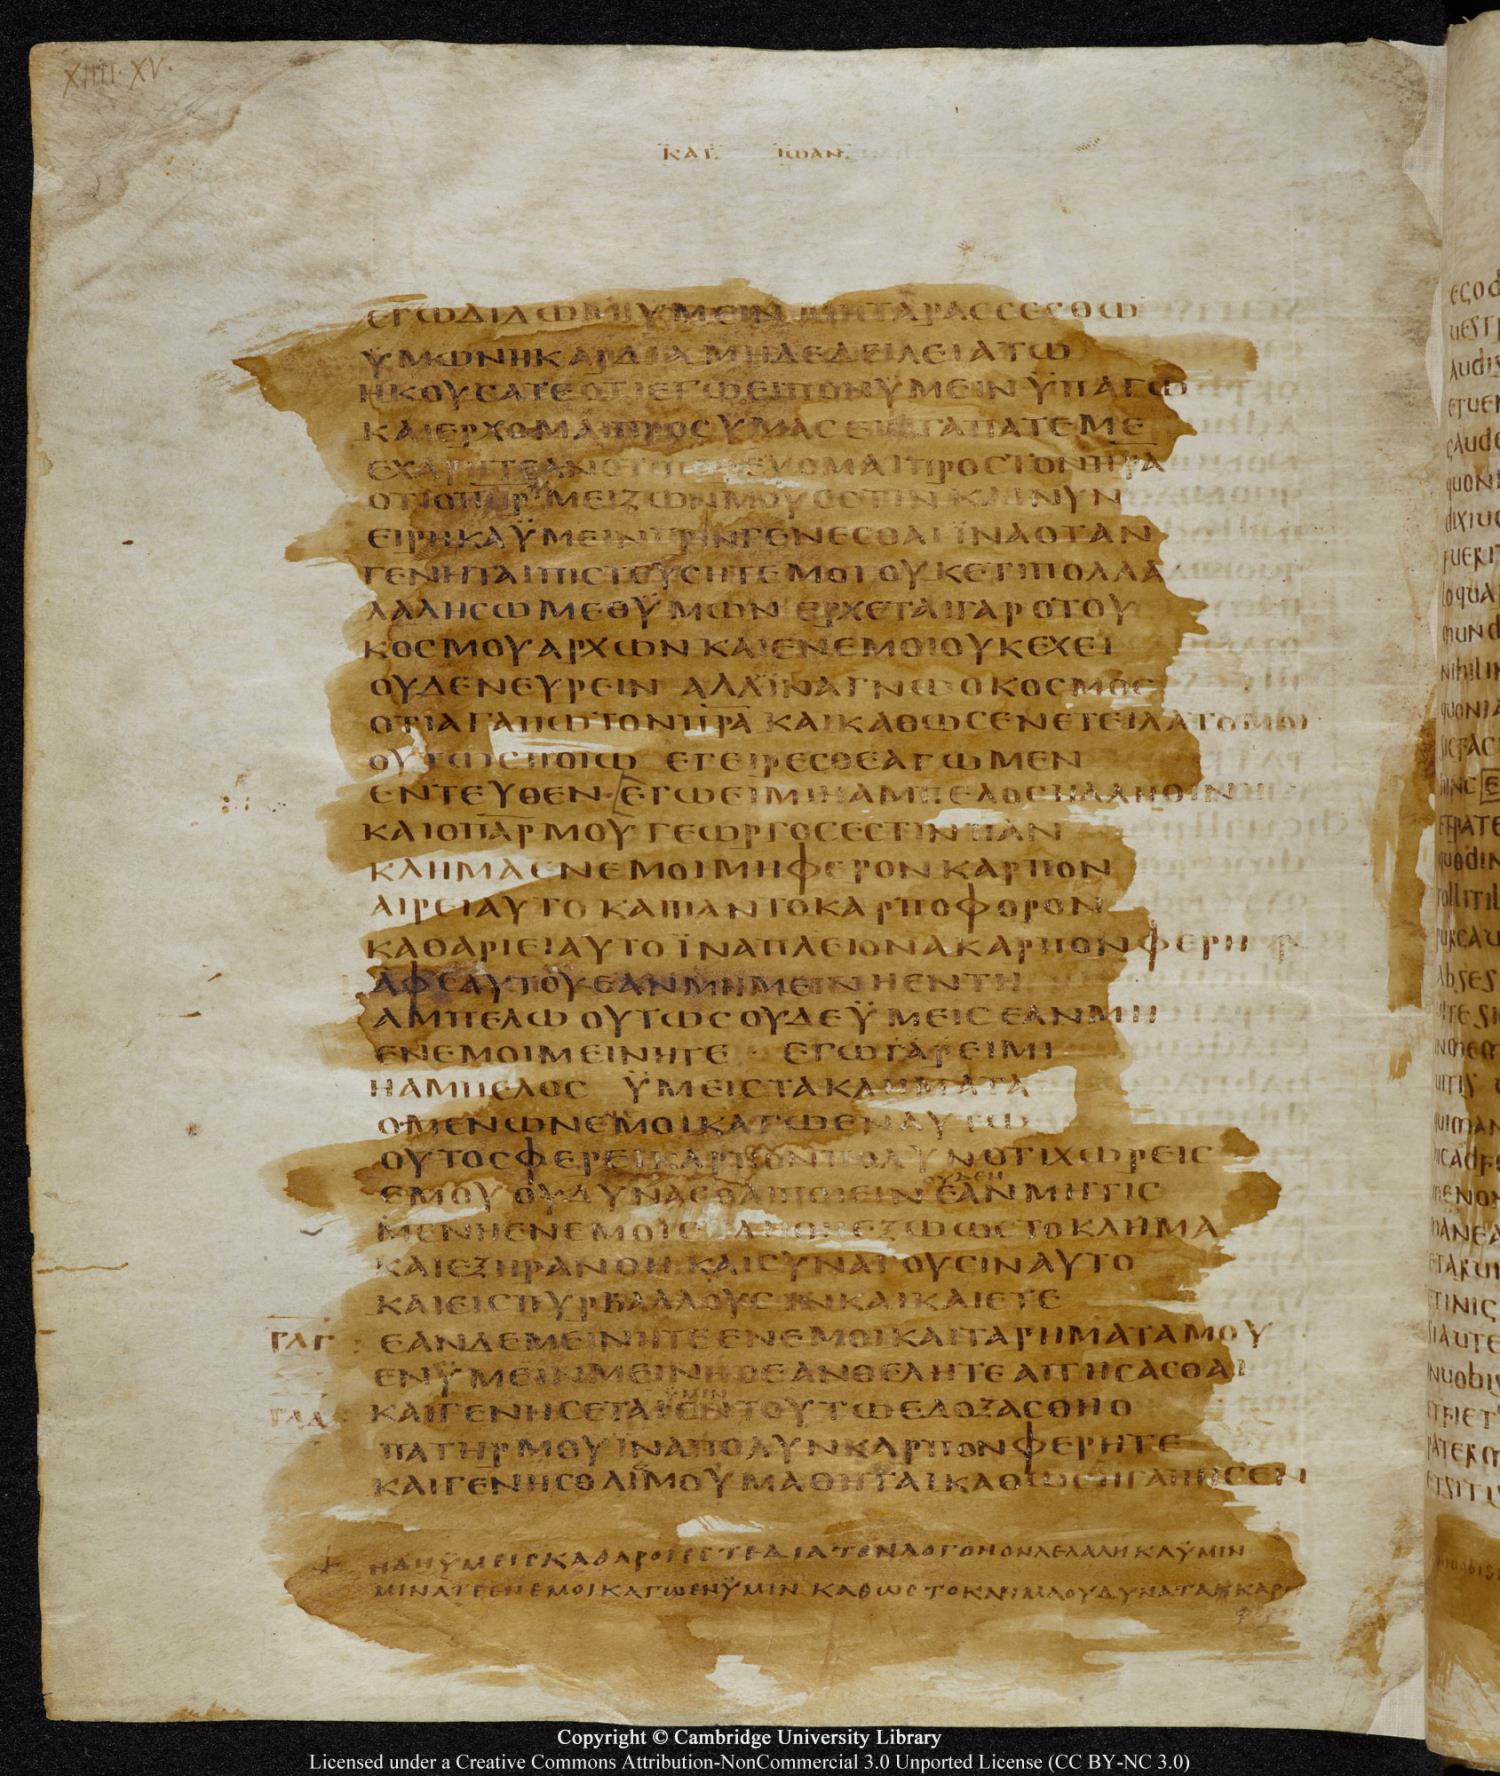 XIIII·XV·
ΚΑΤ. ΙΩΑΝ.
ΕΓΩΔΙΔΩΜΙΫΜΕΙΝ ΜΗΤΑΡΑССΕСΘΩ
ΫΜΩΝΗΚΑΡΔΙΑΜΗΔΕΔΕΙΛΕΙΑΤΩ
ΗΚΟΥСΑΤΕΟΤΙΕΓΩΕΙΠΟΝΫΜΕΙΝΫΠΑΓΩ
ΚΑΙΕΡΧΟΜΑΙΠΡΟСΥΜΑС ΕΙΗΓΑΠΑΤΕΜΕ
ΕΧΑΡΗΤΕΑΝΟΤΙΠΟΡΕΥΟΜΑΙΠΡΟСΤΟΝΠΡΑ
ΟΤΙΟΠΗΡ ΜΕΙΖΩΝΜΟΥΕСΤΙΝ ΚΑΙΝΥΝ
ΕΙΡΗΚΑΫΜΕΙΝΠΡΙΝΓΕΝΕСΘΑΙ ΪΝΑΟΤΑΝ
ΓΕΝΗΤΑΙΠΙСΤΕΥСΗΤΕΜΟΙ ΟΥΚΕΤΙΠΟΛΛΑ
ΛΑΛΗСΩΜΕΘΫΜΩΝ ΕΡΧΕΤΑΙΓΑΡ ΟΤΟΥ
ΚΟСΜΟΥΑΡΧΩΝ ΚΑΙΕΝΕΜΟΙΟΥΚΕΧΕΙ
ΟΥΔΕΝΕΥΡΕΙΝ ΑΛΛΪΝΑΓΝΩΟΚΟСΜΟС
ΟΤΙΑΓΑΠΩΤΟΝΠΡΑ ΚΑΙΚΑΘΩСΕΝΕΤΕΙΛΑΤΟΜΟΙ
ΟΥΤΩСΠΟΙΩ ΕΓΕΙΡΕСΘΕΑΓΩΜΕΝ
ΕΝΤΕΥΘΕΝ·ΕΓΩΕΙΜΙΗΑΜΠΕΛΟСΗΑΛΗΘΙΝΗ
ΚΑΙΟΠΑΡΜΟΥ ΓΕΩΡΓΟСΕСΤΙΝ ΠΑΝ
ΚΛΗΜΑΕΝΕΜΟΙΜΗΦΕΡΟΝΚΑΡΠΟΝ
ΑΙΡΕΙΑΥΤΟ ΚΑΙΠΑΝΤΟΚΑΡΠΟΦΟΡΟΝ
ΚΑΘΑΡΙΕΙΑΥΤΟ ΪΝΑΠΛΕΙΟΝΑΚΑΡΠΟΝΦΕΡΗ
ΑΦΕΑΥΤΟΥΕΑΝΜΗΜΕΙΝΗΕΝΤΗ
ΑΜΠΕΛΩ ΟΥΤΩС ΟΥΔΕΫΜΕΙС ΕΑΝΜΗ
ΕΝΕΜΟΙΜΕΙΝΗΤΕ · ΕΓΩΓΑΡΕΙΜΙ
ΗΑΜΠΕΛΟС ΫΜΕΙСΤΑΚΛΗΜΑΤΑ
ΟΜΕΝΩΝΕΜΟΙΚΑΓΩΕΝΑΥΤΩ
ΟΥΤΟСΦΕΡΕΙΚΑΡΠΟΝΠΟΛΥΝΟΤΙΧΩΡΕΙС
ΟΥΔΕΝ
ΕΜΟΥ ΟΥΔΥΝΑСΘΑΙΠΟΙΕΙΝ ΕΑΝΜΗΤΙС
ΜΕΝΗΕΝΕΜΟΙ ΕΞΩΩСΤΟΚΛΗΜΑ
ΚΑΙΕΞΗΡΑΝΘΗ ΚΑΙСΥΝΑΓΟΥСΙΝΑΥΤΟ
ΚΑΙΕΙСΠΥΡΒΑΛΛΟΥСΙΝΚΑΙΚΑΙΕΤΕ
ΕΑΝΔΕΜΕΙΝΗΤΕΕΝΕΜΟΙΚΑΙΤΑΡΗΜΑΤΑΜΟΥ
ΕΝΫΜΕΙΝΜΕΙΝΗΟΕΑΝΘΕΛΗΤΕ ΑΙΤΗСΑСΘΑΙ
ΫΜΙΝ
ΚΑΙΓΕΝΗСΕΤΑΙΕΝΤΟΥΤΩΕΔΟΞΑСΘΗΟ
ΠΑΤΗΡΜΟΥΪΝΑΠΟΛΥΝΚΑΡΠΟΝΦΕΡΗΤΕ
ΚΑΙΓΕΝΗСΘΑΙΜΟΥΜΑΘΗΤΑΙΚΑΘΩСΗΓΑΠΗСΕΝ
ΗΔΗΫΜΕΙСΚΑΘΑΡΟΙΕСΤΕΔΙΑΤΟΝΛΟΓΟΝΟΝΛΕΛΑΛΗΚΑΫΜΙΝ
ΜΙΝΑΤΕΕΝΕΜΟΙΚΑΓΩΕΝΫΜΙΝ ΚΑΘΩС ΤΟΚΛΗΜΑΟΥΔΥΝΑΤΑΙΚΑΡ
Copyright © Cambridge University Library
Licensed under a Creative Commons Attribution-NonCommercial 3.0 Unported License (CC BY-NC 3.0)